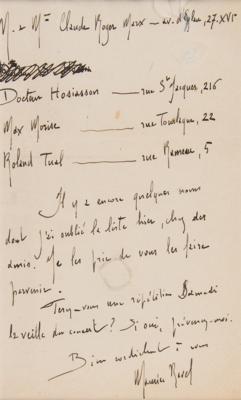 M. & Mme Claude Roger Marx — av. d'Eylau, 27. XVI
Docteur Hosiasson — rue St Jacques, 216
Max Morise — rue Tourlaque, 22
Roland Tual — rue Rameau, 5
Il y a encore quelques noms
dont j'ai oublié la liste hier, chez des
amis. Je les prie de vous les faire
parvenir.
Ferez-vous une répétition Samedi
la veille du concert? Si oui, prévenez-moi.
Bien cordialement à vous
Maurice Ravel